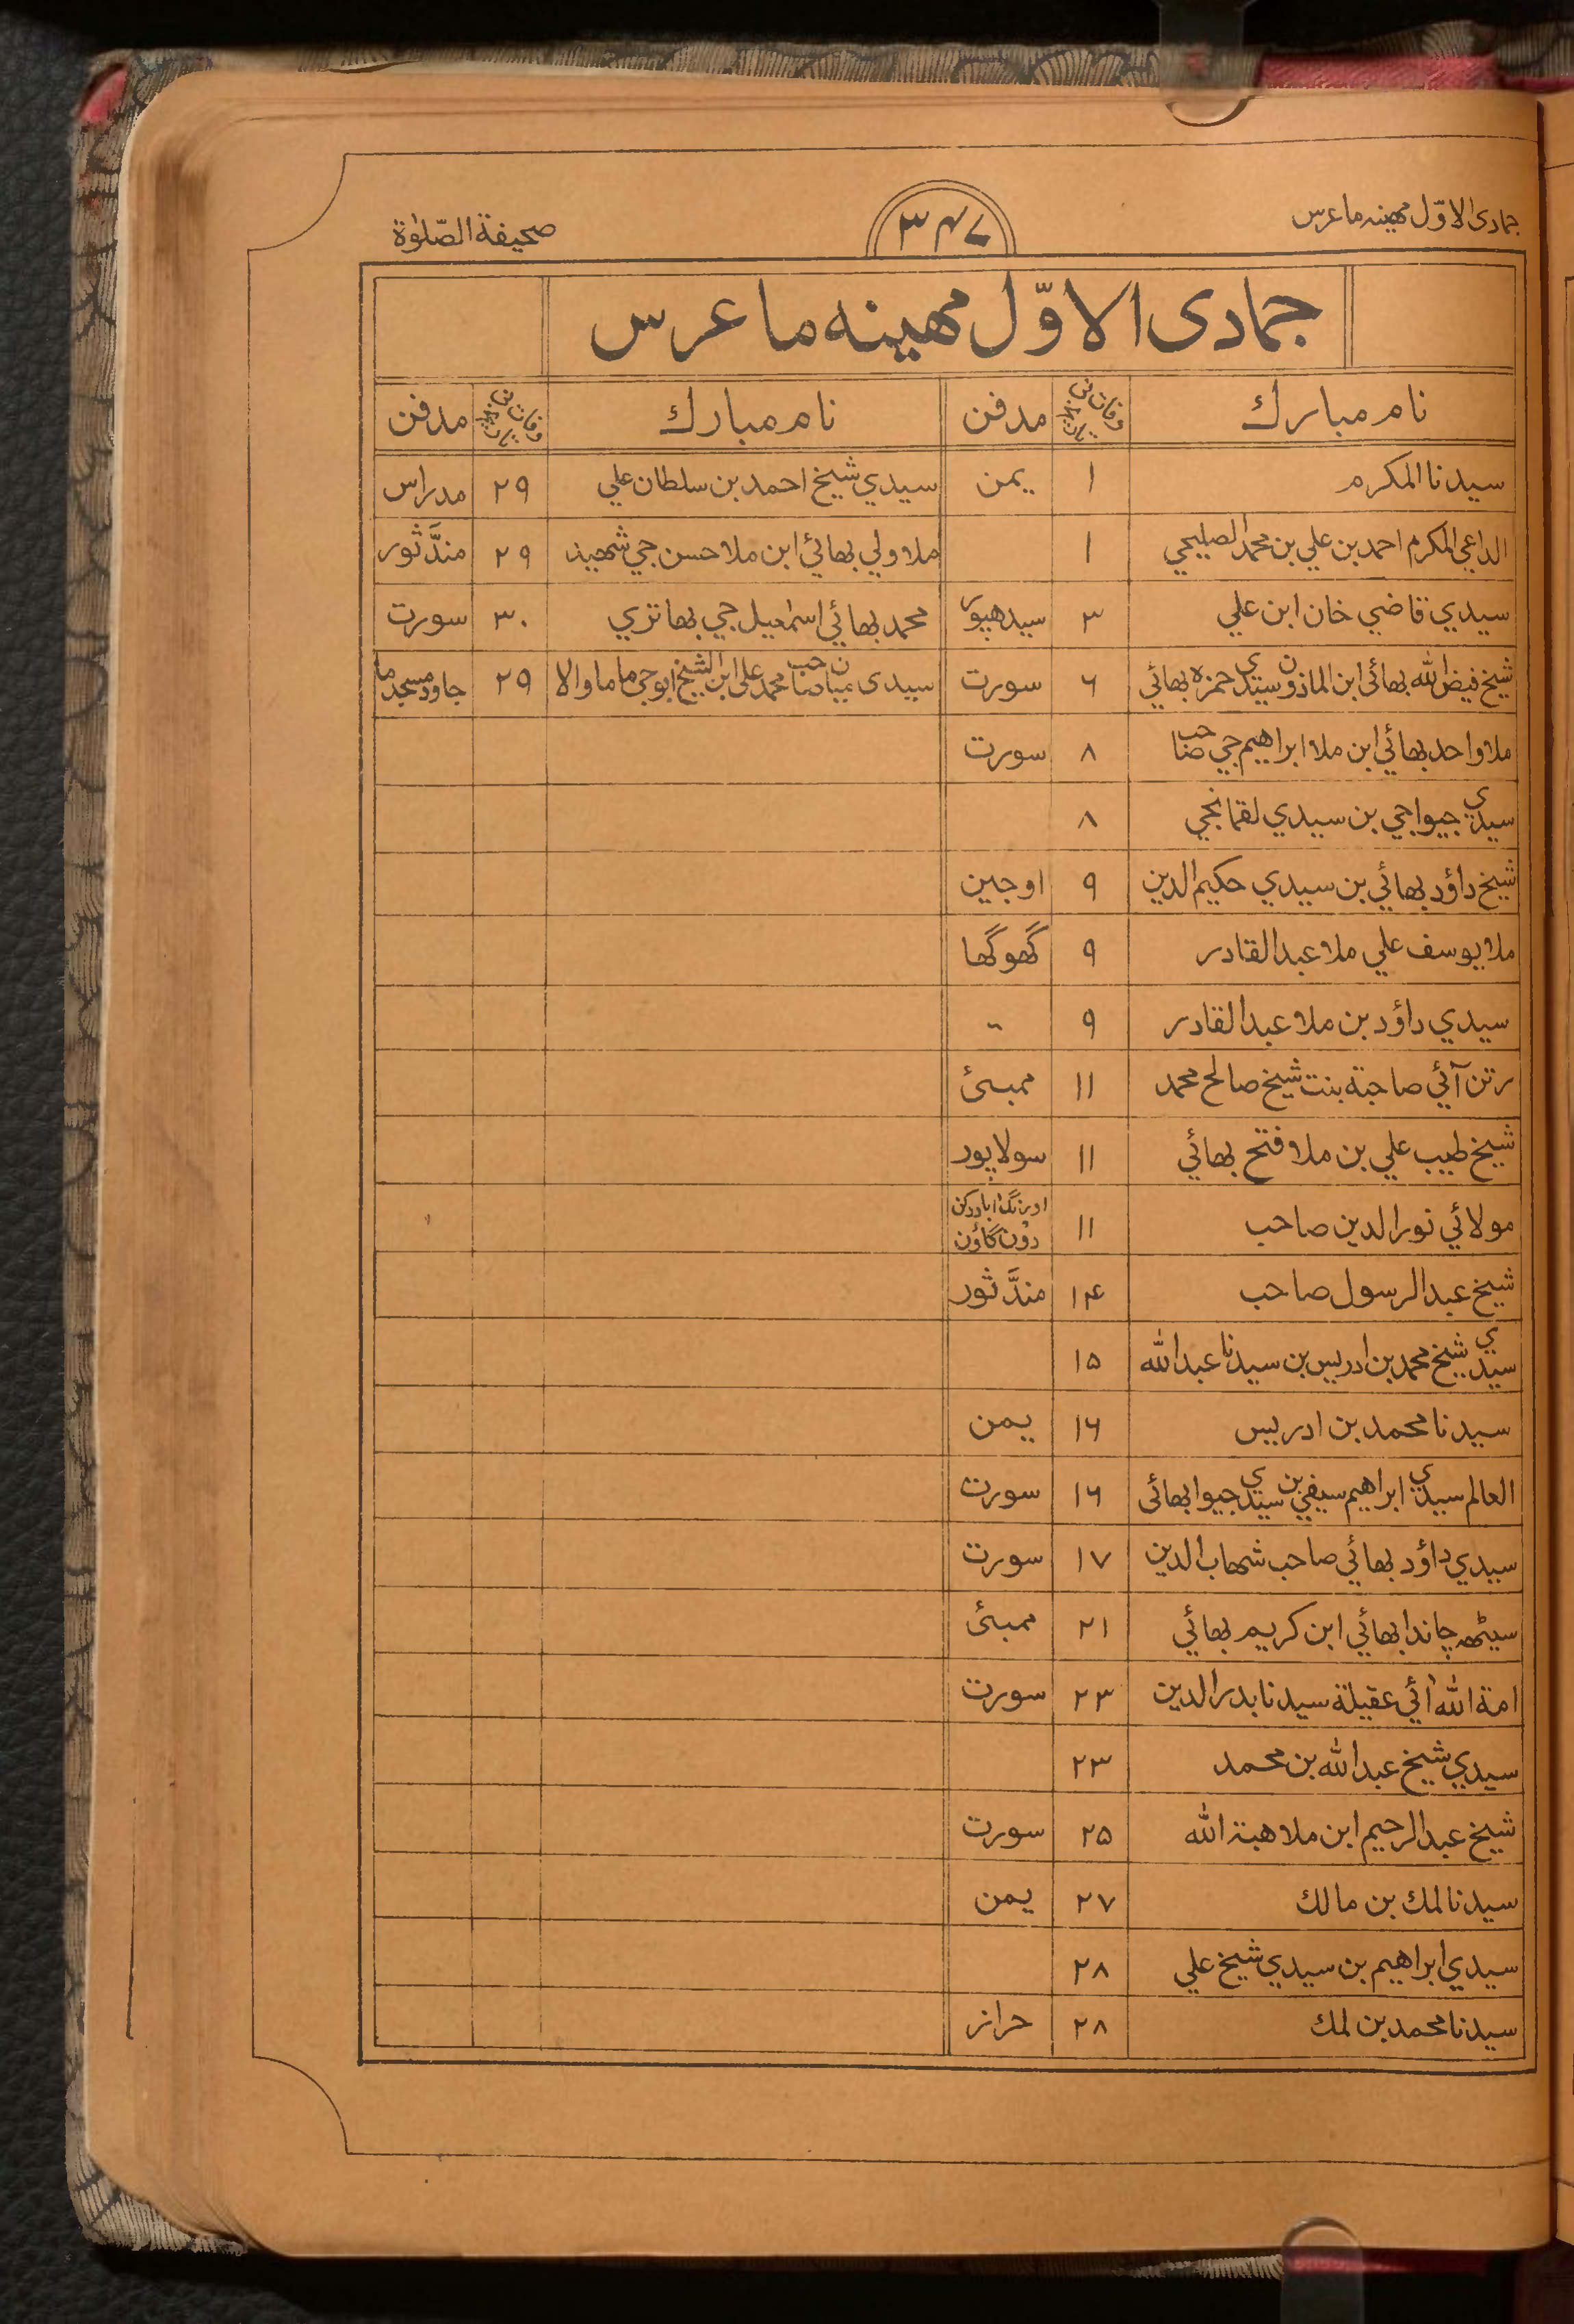 جمادى الاوّل مهينه ما عرس
٣٤٧
صحيفة الصّلوٰة
جمادى الاوّل مهينه ما عرس
نام مبارك وفات ني تاريخ مدفن نام مبارك وفات ني تاريخ مدفن
سيدنا المكرم ١ يمن سيدي شيخ احمد بن سلطان علي ٢٩ مدراس
الداعي المكرم احمد بن علي بن محمد الصليحي ١ ملا ولي بھائي ابن ملا حسن جي شھيد ٢٩ مندَّثور
سيدي قاضي خان ابن علي ٣ سيدھپور محمد بھائي اسمٰعيل جي بھاتري ٣٠ سورت
شيخ فيض الله بھائی ابن الماذون سيدي حمزه بھائی ٦ سورت سيدى ميانصاحب محمد علي ابن الشيخ ابوجي ماما والا ٢٩ جاود مسجد ما
ملا واحد بھائي ابن ملا ابراهيم جي صاحب ٨ سورت
سيدي جيواجي بن سيدي لقمانجي ٨
شيخ داؤد بھائي بن سيدي حكيم الدين ٩ اوجين
ملا يوسف علي ملا عبد القادر ٩ گھوگھا
سيدي داؤد بن ملا عبد القادر ٩ ״
رتن آئي صاحبة بنت شيخ صالح محمد ١١ ممبئ
شيخ طيب علي بن ملا فتح بھائي ١١ سولاپور
مولائي نور الدين صاحب ١١ اورنگ اباد دكن
دون گاؤن
شيخ عبد الرسول صاحب ١٤ مندَّثور
سيدي شيخ محمد بن ادريس بن سيدنا عبد الله ١٥
سيدنا محمد بن ادريس ١٦ يمن
العالم سيدي ابراهيم سيفي بن سيدي جيوا بھائی ١٦ سورت
سيدي داؤد بھائي صاحب شهاب الدين ١٧ سورت
سيٹھ چاندا بھائي ابن كريم بھائي ٢١ ممبئ
امة الله ائي عقيلة سيدنا بدر الدين ٢٣ سورت
سيدي شيخ عبد الله بن محمد ٢٣
شيخ عبد الرحيم ابن ملا هبة الله ٢٥ سورت
سيدنا لمك بن مالك ٢٧ يمن
سيدي ابراهيم بن سيدي شيخ علي ٢٨
سيدنا محمد بن لمك ٢٨ حراز